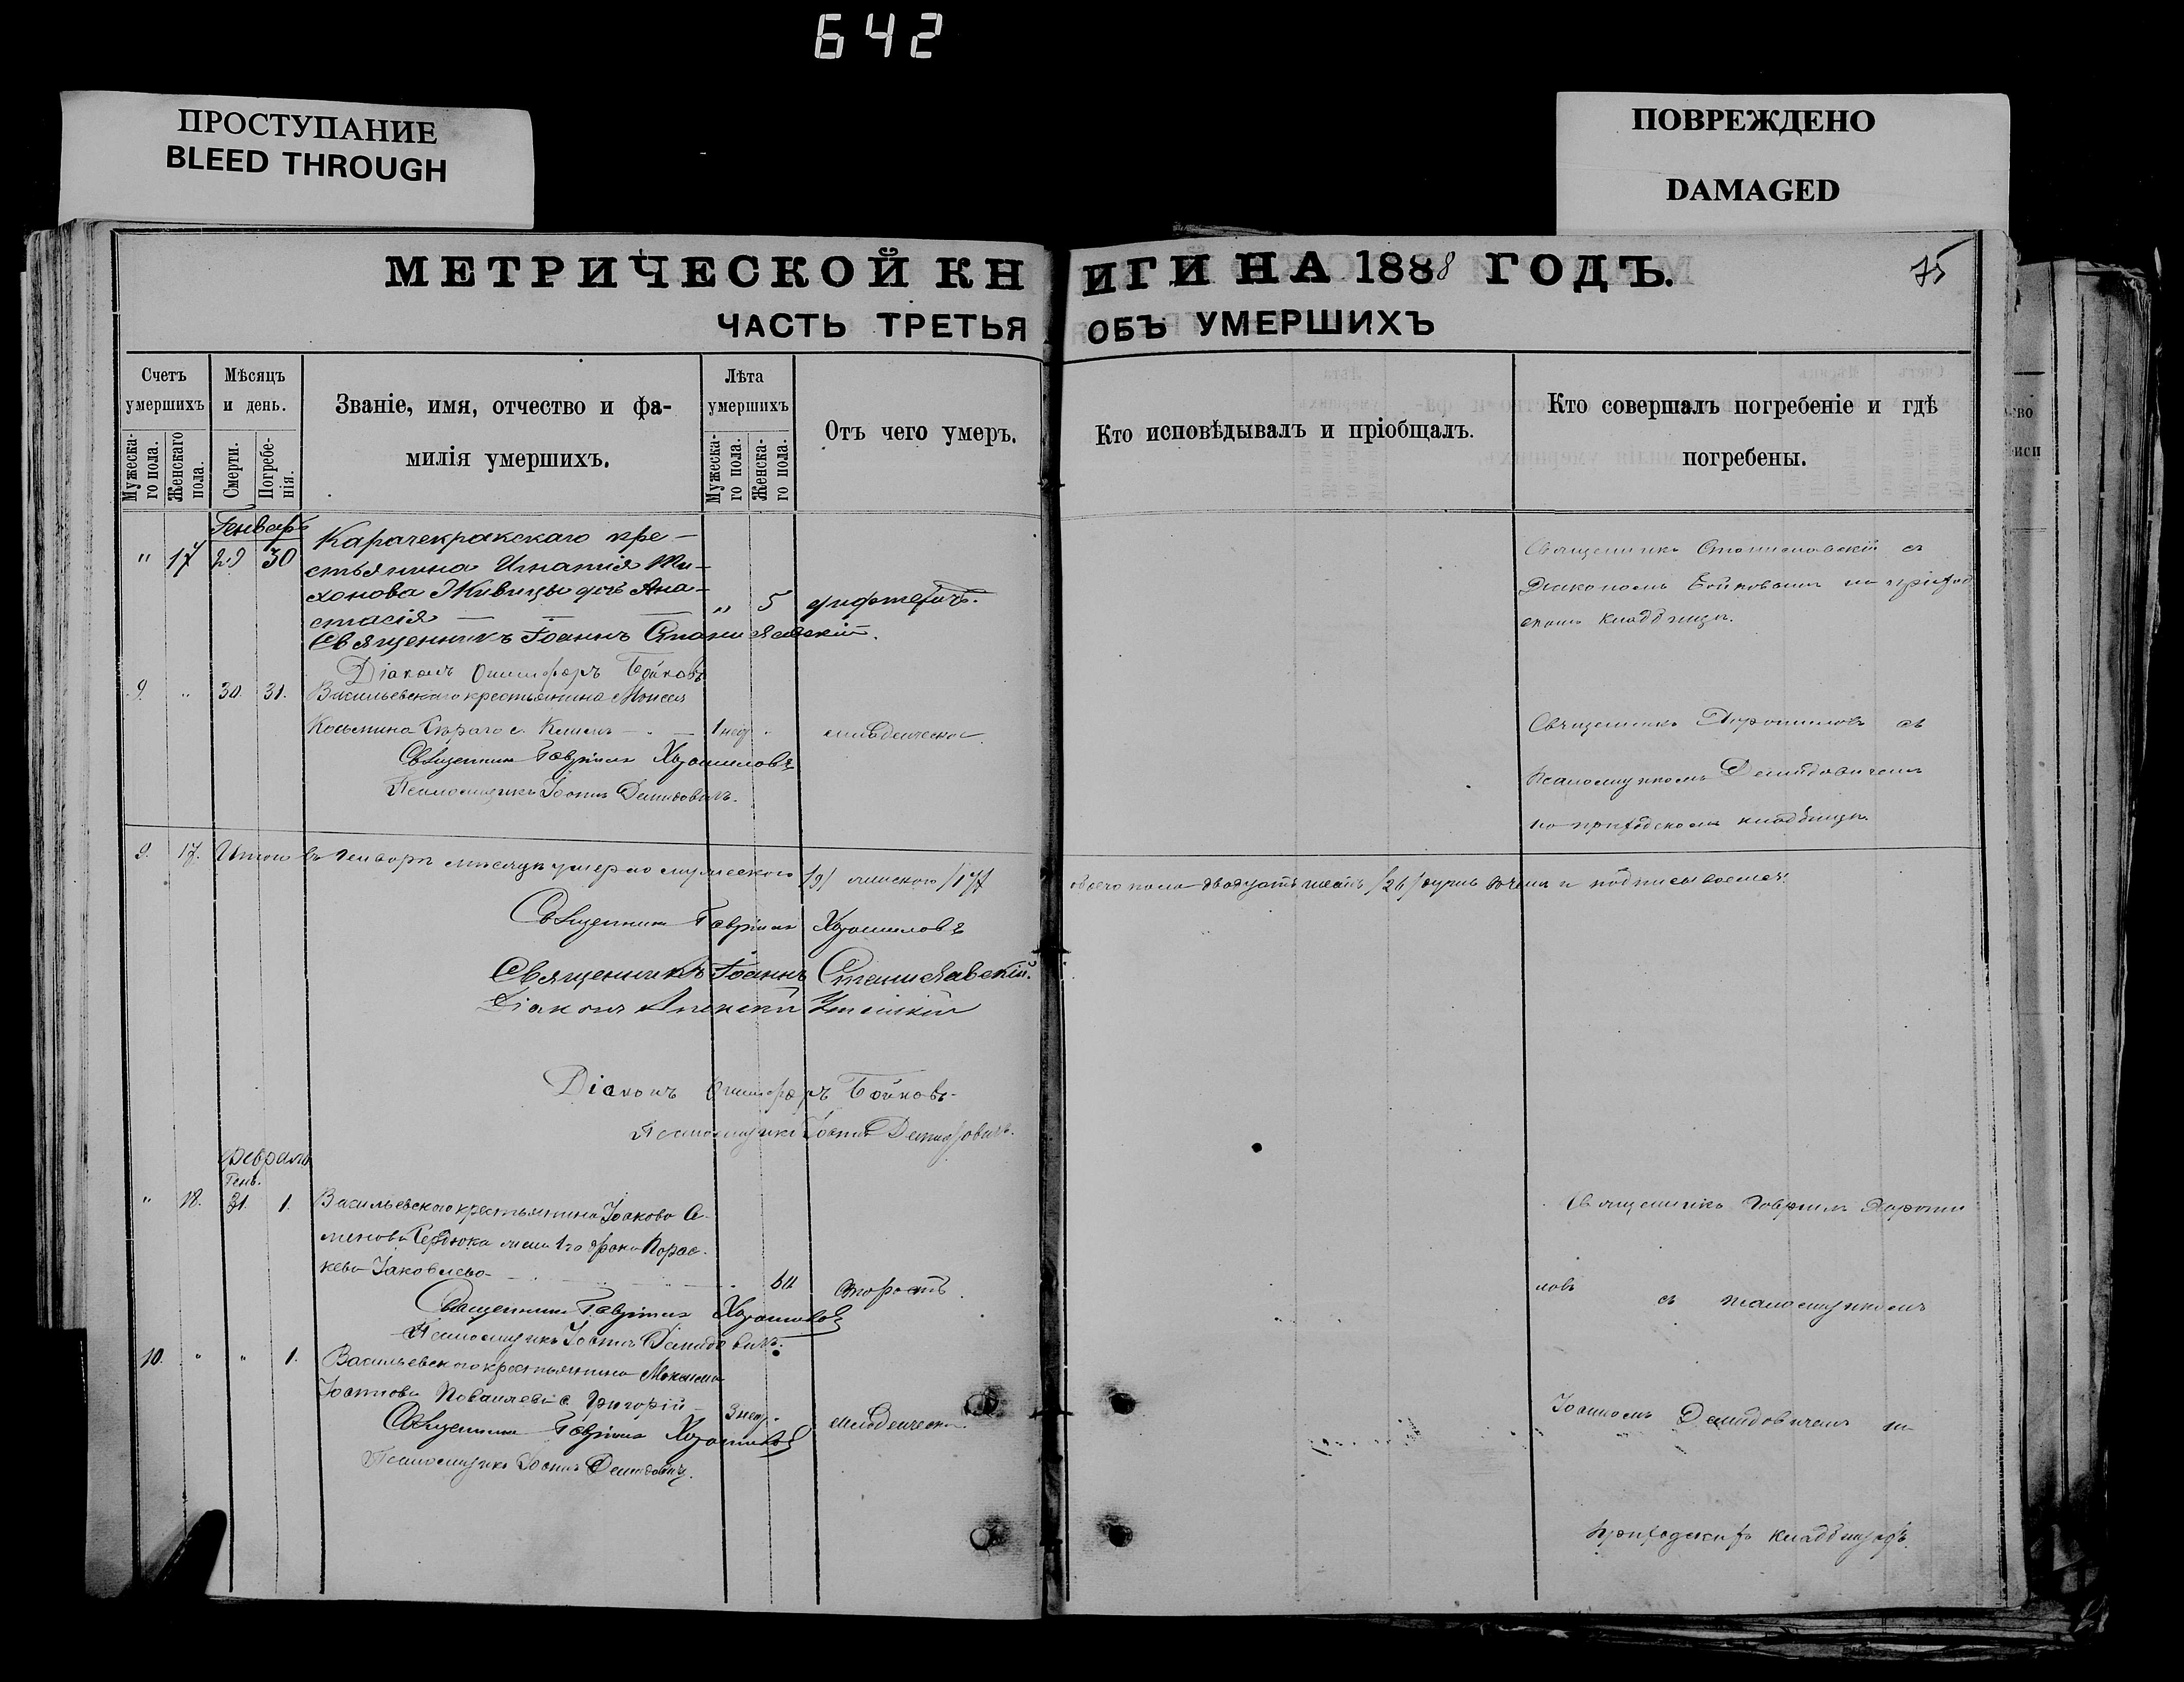 642
ПРОСТУПАНИЕ
BLEED THROUGH
ПОВРЕЖДЕНО
DAMAGED
МЕТРИЧЕСКОЙ КНИГИ НА 1888 ГОДЪ.
75
ЧАСТЬ ТРЕТЬЯ ОБЪ УМЕРШИХЪ
Счетъ умершихъ
Мужескаго пола.
Женскаго пола.
Мѣсяцъ и день.
Смерти.
Погребенія.
Званіе, имя, отчество и фамилія умершихъ.
Лѣта умершихъ
Мужескаго пола.
Женскаго пола.
Отъ чего умеръ.
Кто исповѣдывалъ и пріобщалъ.
Кто совершалъ погребеніе и гдѣ погребены.
Генварь
" 17 29 30 Карачекракскаго кре-
стьянина Игнатія Ти-
хонова Живицы дочь Ана-
стасія — — " 5 дифтеритъ.
Священникъ Іоаннъ Станиславскій.
Діаконъ Онисифоръ Бойковъ
Священникъ Станиславскій съ
Діакономъ Бойковымъ на приход
скомъ кладбищѣ.
9. " 30. 31. Васильевскаго крестьянина Моисея
Косьмина с. 1 нед. младенческ
Священникъ Гавріилъ Хорошиловъ
Псаломщикъ Іоаннъ Демидовичъ.
Священникъ Хорошиловъ съ
псаломщикомъ Демидовичемъ
на приходскомъ кладбищѣ.
9. 17. Итого въ Генварѣ мѣсяцѣ умерло мужескаго /9/ женскаго /17/ обоего пола двадцать шесть /26/ душъ въ чемъ и подписываемся:
Священникъ Гавріилъ Хорошиловъ
Священникъ Іоаннъ Станиславскій.
Діаконъ Алексій
Діаконъ Онисифоръ Бойковъ
Псаломщикъ Іоаннъ Демидовичъ.
Февраль
Генв.
" 18. 31. 1. Васильевскаго крестьянина Іакова Се-
менова Сердюка жена 1го брака Парас-
кева Іаковлева 60 старость
Священникъ Гавріилъ Хорошиловъ
Псаломщикъ Іоаннъ Демидовичъ.
Священникъ Гавріилъ Хороши
ловъ съ псаломщикомъ
10. " " 1. Васильевскаго крестьянина Максима
Іоаннова с. Григорій 3 нед. младенческ.
Священникъ Гавріилъ Хорошиловъ
Псаломщикъ Іоаннъ Демидовичъ.
Іоанномъ Демидовичемъ на
приходскихъ кладбищахъ.